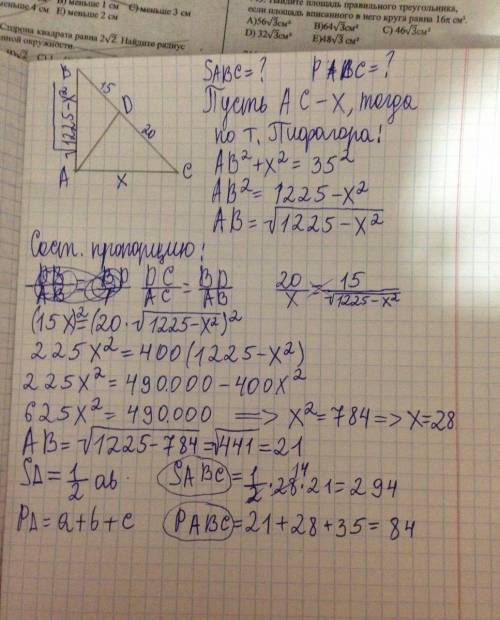 меньше 4 см
меньше 1 см
E) меньше 2 см
C) меньше 3 см
Сторона квадрата равна 2√2. Найдите радиус
окружности.
Найдите площадь правильного треугольника,
если площадь вписанного в него круга равна 16π см².
A)56√3см²
B)64√3см²
C) 46√3см²
D) 32√3см²
E)48√3 см²
B
15
D
20
√1225-x²
A
x
C
SABC=? PABC=?
Пусть AC-X, тогда
по т. Пифагора:
AB²+x²=35²
AB²=1225-x²
AB=√1225-x²
Сост. пропорцию:
DC/AC=BD/AB 20/x=15/√1225-x²
(15x)²=(20·√1225-x²)²
225x²=400(1225-x²)
225x²=490.000-400x²
625x²=490.000 => x²=784=>x=28
AB=√1225-784=√441=21
SΔ=1/2 ab SABC=1/2·28·21=294
14
PΔ=a+b+c PABC=21+28+35=84